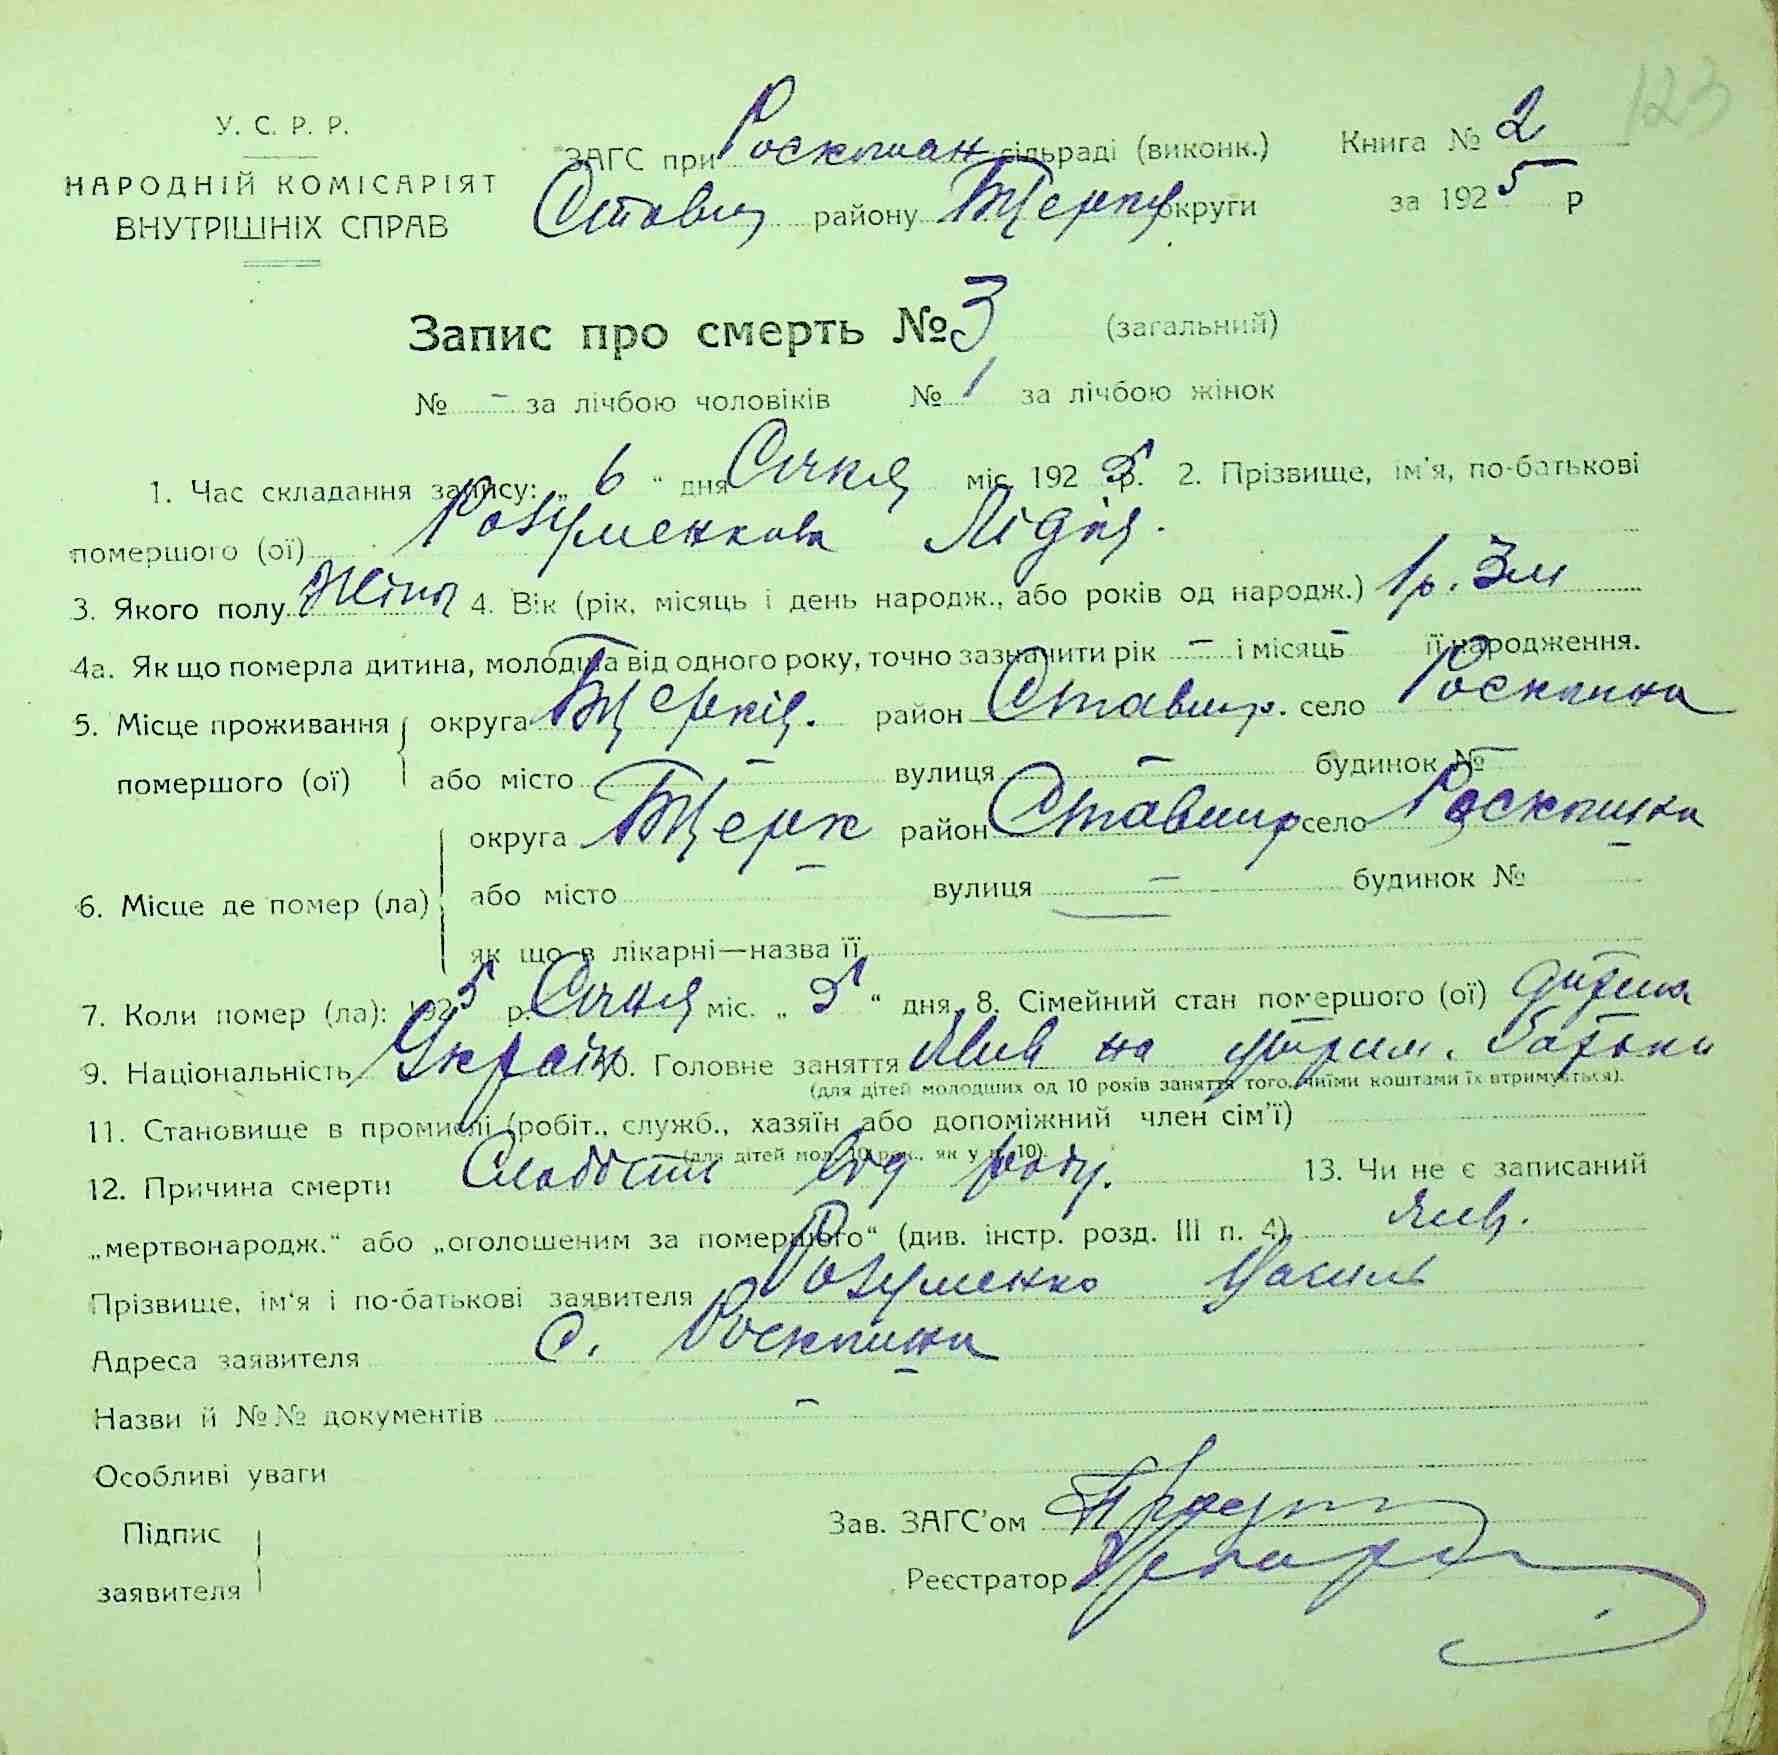 123
У. С. Р. Р.
НАРОДНІЙ КОМІСАРІЯТ
ВНУТРІШНІХ СПРАВ
ЗАГС при Роскошан сільраді (виконк.)
Ставищ району БЦерків округи
Книга № 2
за 1925 р
Запис про смерть № 3 (загальний)
№ - за лічбою чоловіків № 1 за лічбою жінок
1. Час складання запису: „ 6 “ дня Січня міс. 1925 р. 2. Прізвище, ім'я, по-батькові
помершого (ої) Розуменкова Лідія.
3. Якого полу Жіноч 4. Вік (рік, місяць і день народж., або років од народж.) 1 р. 3 м
4а. Як що померла дитина, молодша від одного року, точно зазначити рік - і місяць - її народження.
5. Місце проживання округа БЦерків. район Ставищ. село Роскішна
помершого (ої) або місто - вулиця - будинок № -
округа БЦерк район Ставищ село Роскішна
6. Місце де помер (ла) або місто - вулиця - будинок № -
як що в лікарні—назва її
7. Коли помер (ла): 1925 р. Січня міс. „ 5 “ дня. 8. Сімейний стан помершого (ої) дитина
9. Національність Україн 10. Головне заняття на утрим. батьки
(для дітей молодших од 10 років заняття того, чиїми коштами їх втримується).
11. Становище в промислі (робіт., служб., хазяїн або допоміжний член сім'ї)
(для дітей мол. 10 рок., як у п. 10).
12. Причина смерти Слабости від роду. 13. Чи не є записаний
„мертвонародж.“ або „оголошеним за померлого“ (див. інстр. розд. III п. 4)
Прізвище, ім'я і по-батькові заявителя Розуменко Василь
Адреса заявителя с. Роскішна
Назви й №№ документів -
Особливі уваги
Підпис
заявителя
Зав. ЗАГС'ом
Реєстратор